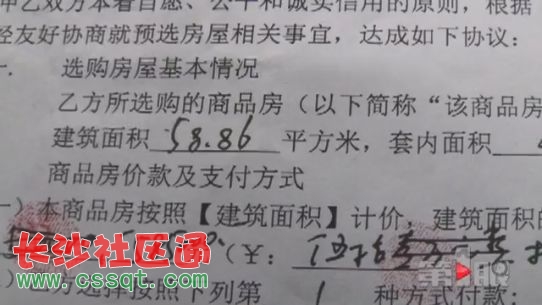 甲乙双方本着自愿、公平和诚实信用的原则，根据
经友好协商就预选房屋相关事宜，达成如下协议：
一. 选购房屋基本情况
乙方所选购的商品房（以下简称“该商品房
建筑面积 58.86 平方米，套内面积
商品房价款及支付方式
一）本商品房按照【建筑面积】计价，建筑面积的
（¥：
方选择按照下列第 1 种方式付款：
长沙社区通
www.cssqt.com